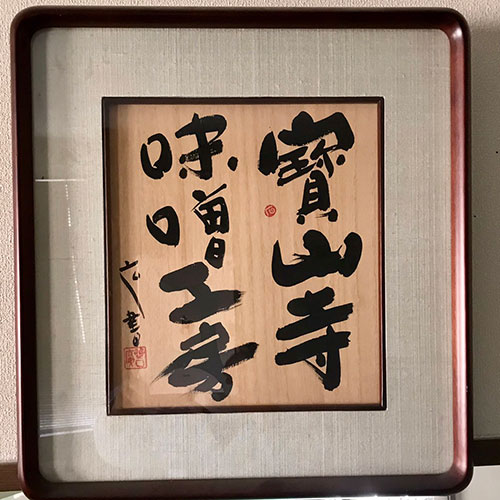 寶山寺
味噌工房
書